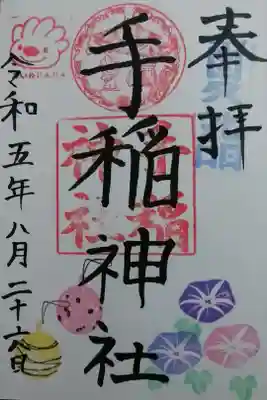 奉拝
手稲神社
手稲神社
令和五年八月二十六日